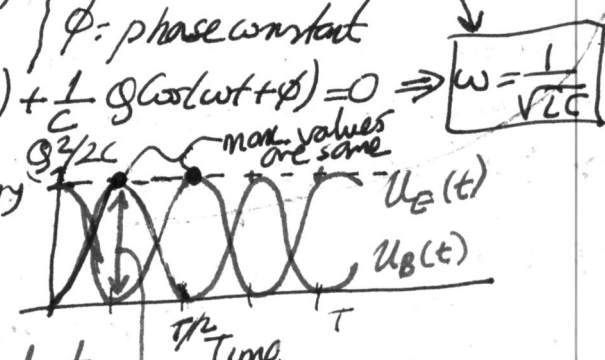 φ: phase constant
) + 1/C Q Cos(ωt+φ) = 0 ⇒ ω = 1/√LC
Q²/2C
max. values
are same
U_E(t)
U_B(t)
T/2
T
Time